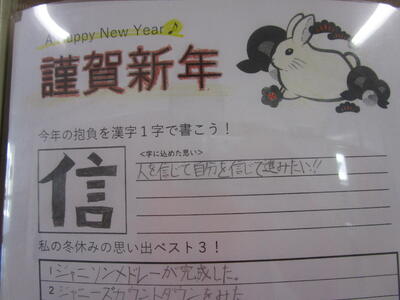 A Happy New Year♪
謹賀新年
今年の抱負を漢字1字で書こう！
<字に込めた思い>
信
人を信じて自分を信じて進みたい!!
私の冬休みの思い出ベスト3！
1 ジャニソンメドレーが完成した。
2 ジャニーズカウントダウンをみた